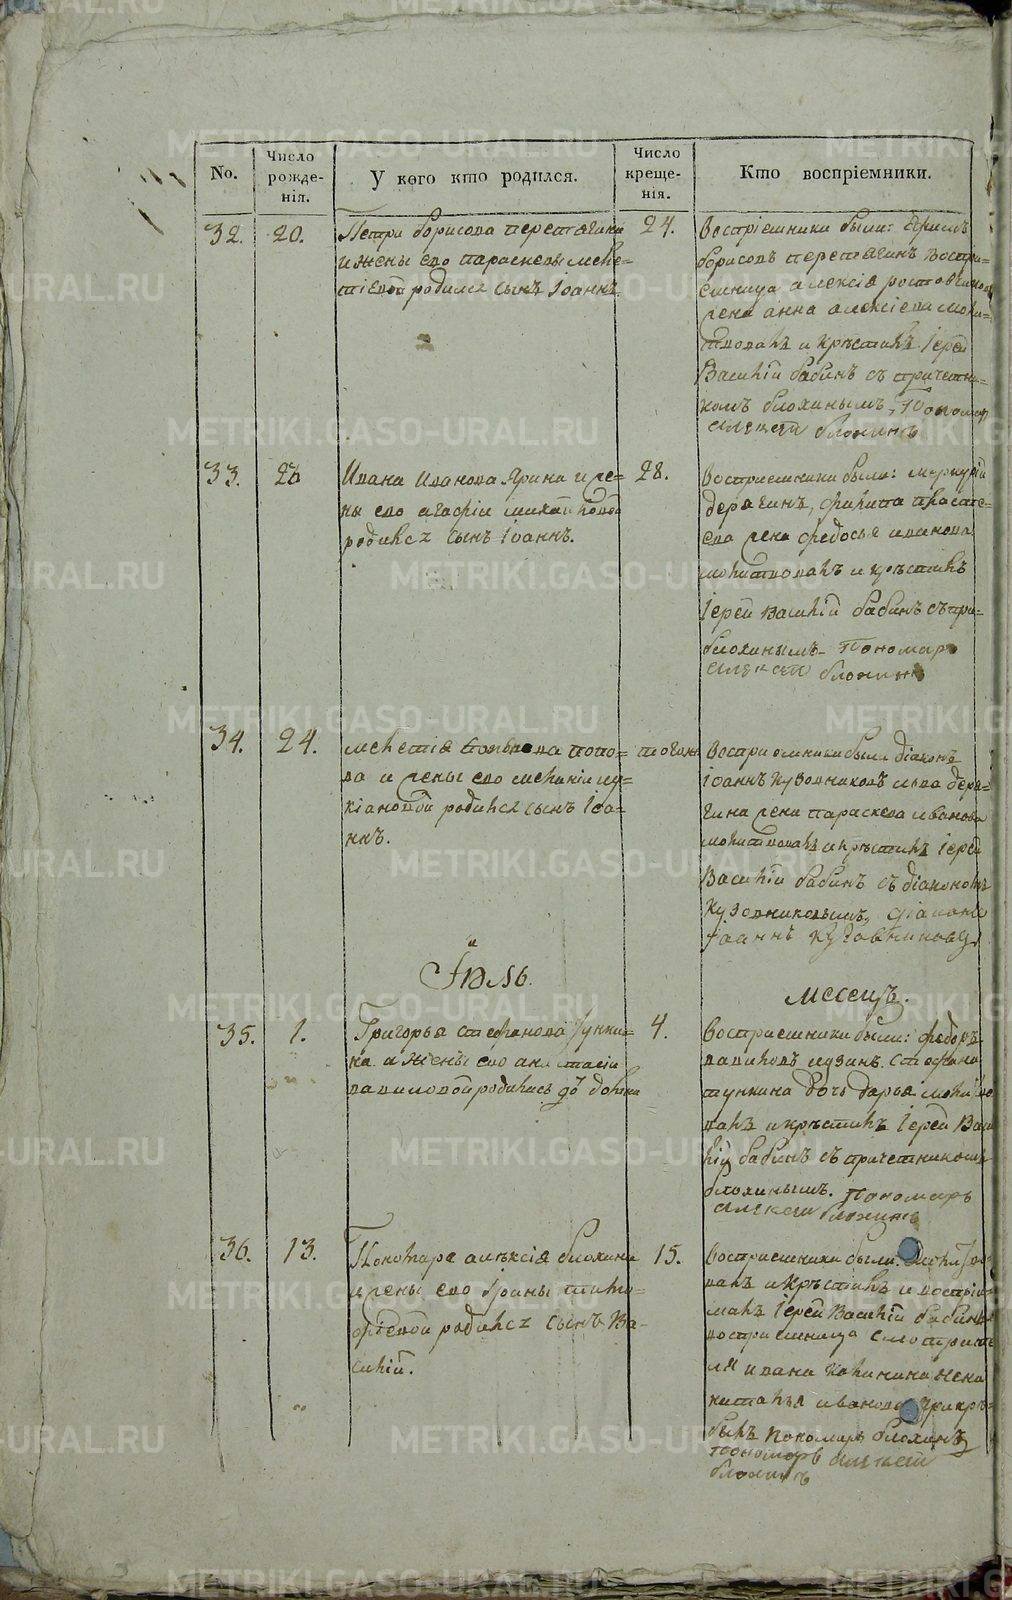 No.
Число рожде-нія.
У кого кто родился.
Число креще-нія.
Кто воспріемники.
32.
20.
Петра борисова перетягина
и жены ево параскевы меле-
тіевой родился сынъ Іоаннъ.
24.
воспріемники были:
борисовъ перетягинъ воспри-
емница алексія
жена анна алексіева моли-
твовалъ и крѣстилъ Іерей
Василій бабинъ съ причетни-
комъ блохинымъ, Пономар
алексей блохинъ
33.
26
Ивана Иванова Ярина и же-
ны ево агафіи михайловой
родился сынъ Іоаннъ.
28.
Восприемники были: меркурій
дерягинъ, филипа
ева жена федосья иванова
молитвовалъ и крѣстилъ
Іерей василій бабинъ съ при-
блохинымъ. Пономаръ
алексей блохинъ
34.
24.
мелетія попо-
ва и жены ево меланіи лу-
кіановой родился сынъ Іоа-
ннъ.
тогожъ
Восприемники были діаконъ
іоаннъ кузовниковъ деря-
гина жена параскева иванова
молитвовалъ и крѣстилъ Іерей
Василій бабинъ съ діакономъ
кузовниковымъ, діаконъ
іоаннъ кузовниковъ
Іюль.
мѣсецъ.
35.
1.
Григорья стефанова Тункина
и жены ево анастасіи
вавиловой родилась дочь
4.
Восприемники были: федоръ
вавиловъ стефана
тункина дочь дарья молитво-
валъ и крѣстилъ Іерей Васи-
лій бабинъ съ причетникомъ
блохинымъ. Пономаръ
алексей блохинъ
36.
13.
Пономаря алѣксія блохина
и жены ево Ірины тимо-
фіевой родился сынъ Ва-
силій.
15.
восприемники были: молитво-
валъ и крѣстилъ и воспріи-
малъ Іерей Василій бабинъ
восприемница смотрите-
ля ивана калинина жена
наталья иванова. При кр-
былъ пономарь блохинъ
пономарь алексей
блохинъ
METRIKI.GASO-URAL.RU